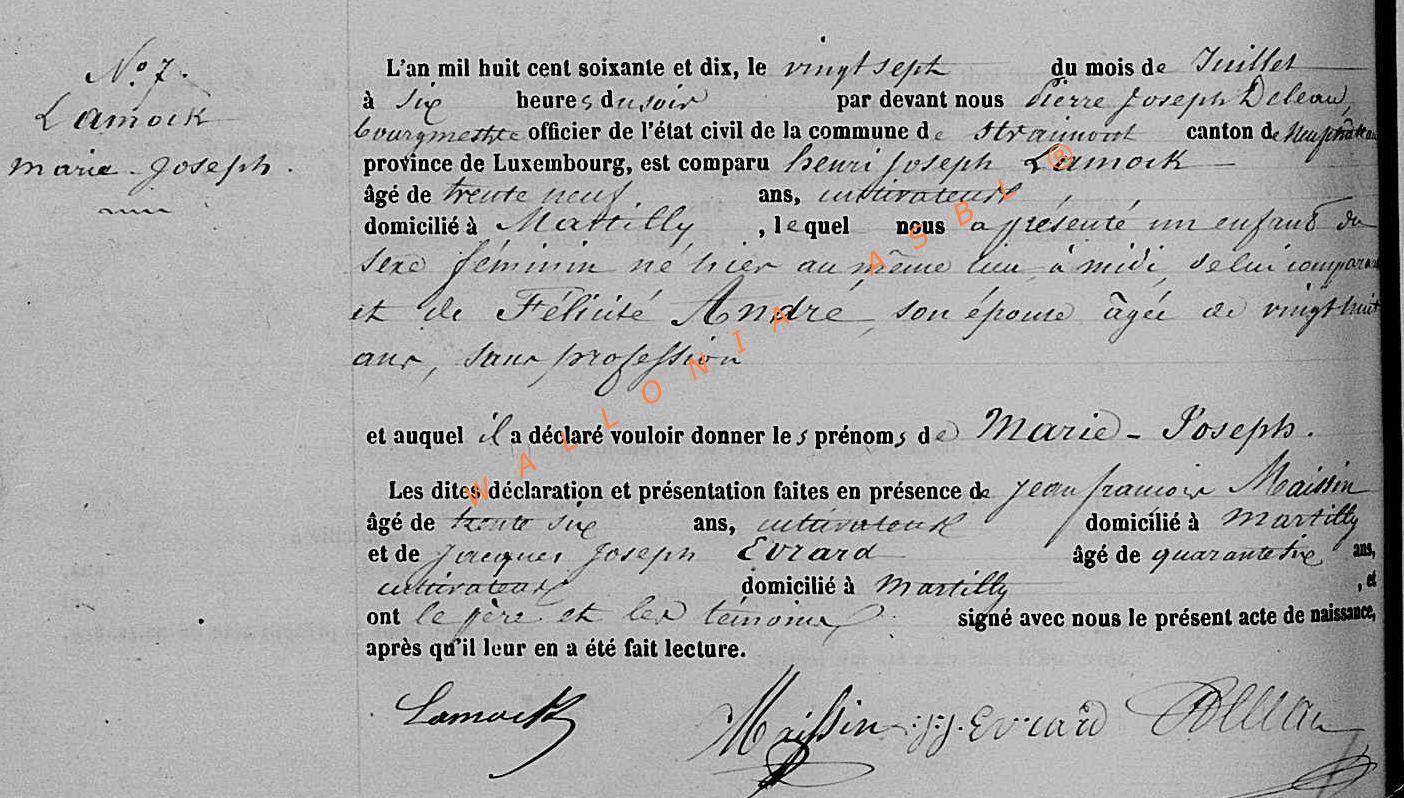 N.° 7.
Lamock
Marie-Joseph.
L'an mil huit cent soixante et dix, le vingt sept du mois de Juillet
à six heures du soir par devant nous Pierre Joseph Deleau,
bourgmestre officier de l'état civil de la commune de Straimont canton de Neufchâteau
province de Luxembourg, est comparu henri Joseph Lamock
âgé de trente neuf ans, cultivateur
domicilié à Martilly, lequel nous a présenté un enfant du
sexe féminin né hier au même lieu à midi, de lui comparant
et de Félicité André, son épouse âgée de vingt huit
ans, sans profession
et auquel il a déclaré vouloir donner les prénoms de Marie-Joseph.
Les dites déclaration et présentation faites en présence de Jean françois Maissin
âgé de trente six ans, cultivateur domicilié à Martilly
et de Jacques Joseph Evrard âgé de quarante six ans,
cultivateur domicilié à Martilly, et
ont le père et les témoins signé avec nous le présent acte de naissance,
après qu'il leur en a été fait lecture.
Lamock Maissin J.J. Evrard Deleau
WALLONIA ASBL ®